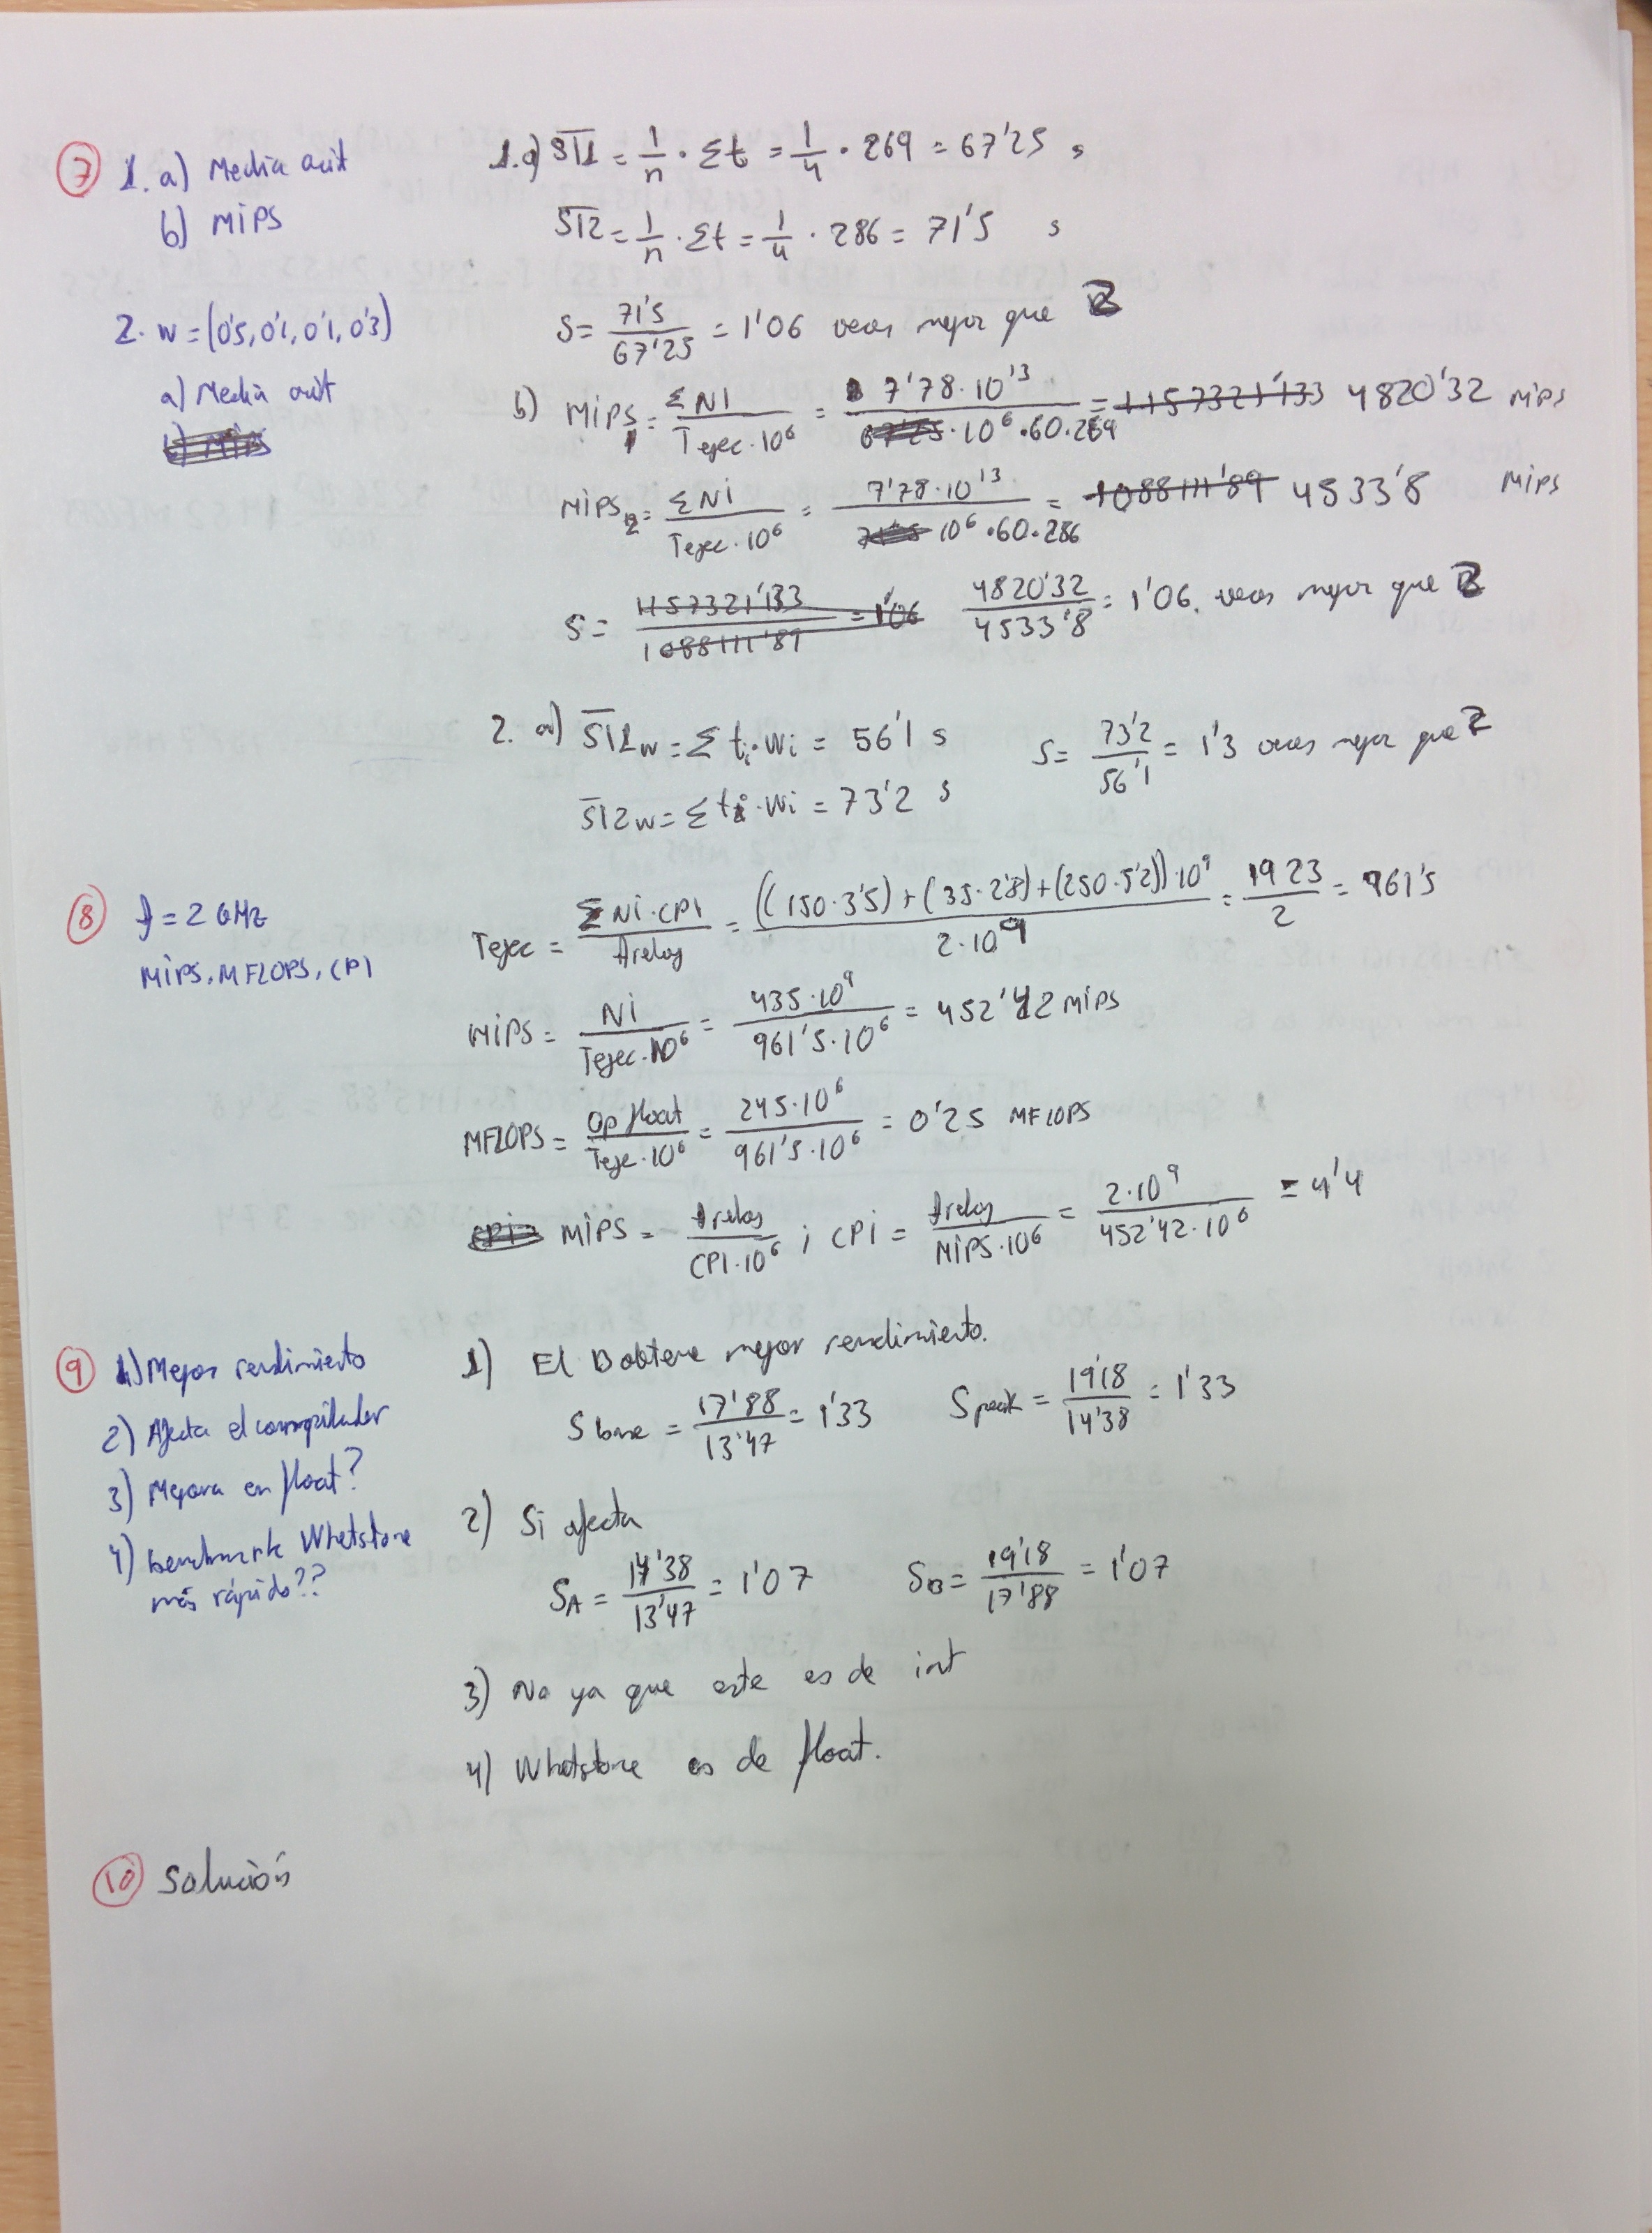 7 1. a) Media arit
b) MIPS
1.a) S11 = 1/n · Σt = 1/4 · 269 = 67'25 s
S12 = 1/n · Σt = 1/4 · 286 = 71'5 s
2. w = (0'5, 0'1, 0'1, 0'3)
a) Media arit
S = 71'5/67'25 = 1'06 veces mejor que 2
b) MIPS1 = ΣNI/Tejec·10^6 = 7'78·10^13/10^6·60·269 = 1157321'133 4820'32 MIPS
MIPS2 = ΣNI/Tejec·10^6 = 7'78·10^13/10^6·60·286 = 1088111'89 4533'8 MIPS
S = 1157321'133/1088111'89 = 1'06 4820'32/4533'8 = 1'06 veces mejor que 2
2. a) S11w = Σ ti·wi = 56'1 s S = 73'2/56'1 = 1'3 veces mejor que 2
S12w = Σ ti·wi = 73'2 s
8 f = 2 GHz
MIPS, MFLOPS, CPI
Tejec = ΣNi·CPI/freloj = ((150·3'5)+(35·2'8)+(250·5'2))·10^9/2·10^9 = 1923/2 = 961'5
MIPS = NI/Tejec·10^6 = 435·10^9/961'5·10^6 = 452'42 MIPS
MFLOPS = Op float/Teje·10^6 = 245·10^6/961'5·10^6 = 0'25 MFLOPS
CPI MIPS = freloj/CPI·10^6 ; CPI = freloj/MIPS·10^6 = 2·10^9/452'42·10^6 = 4'4
9 1) Mejor rendimiento
2) Afecta el compilador
3) Mejora en float?
4) benchmark Whetstone
más rápido??
1) El B obtiene mejor rendimiento.
S base = 17'88/13'47 = 1'33 S peak = 19'18/14'38 = 1'33
2) Si afecta
SA = 14'38/13'47 = 1'07 SB = 19'18/17'88 = 1'07
3) No ya que este es de int
4) Whetstone es de float.
10 Solución